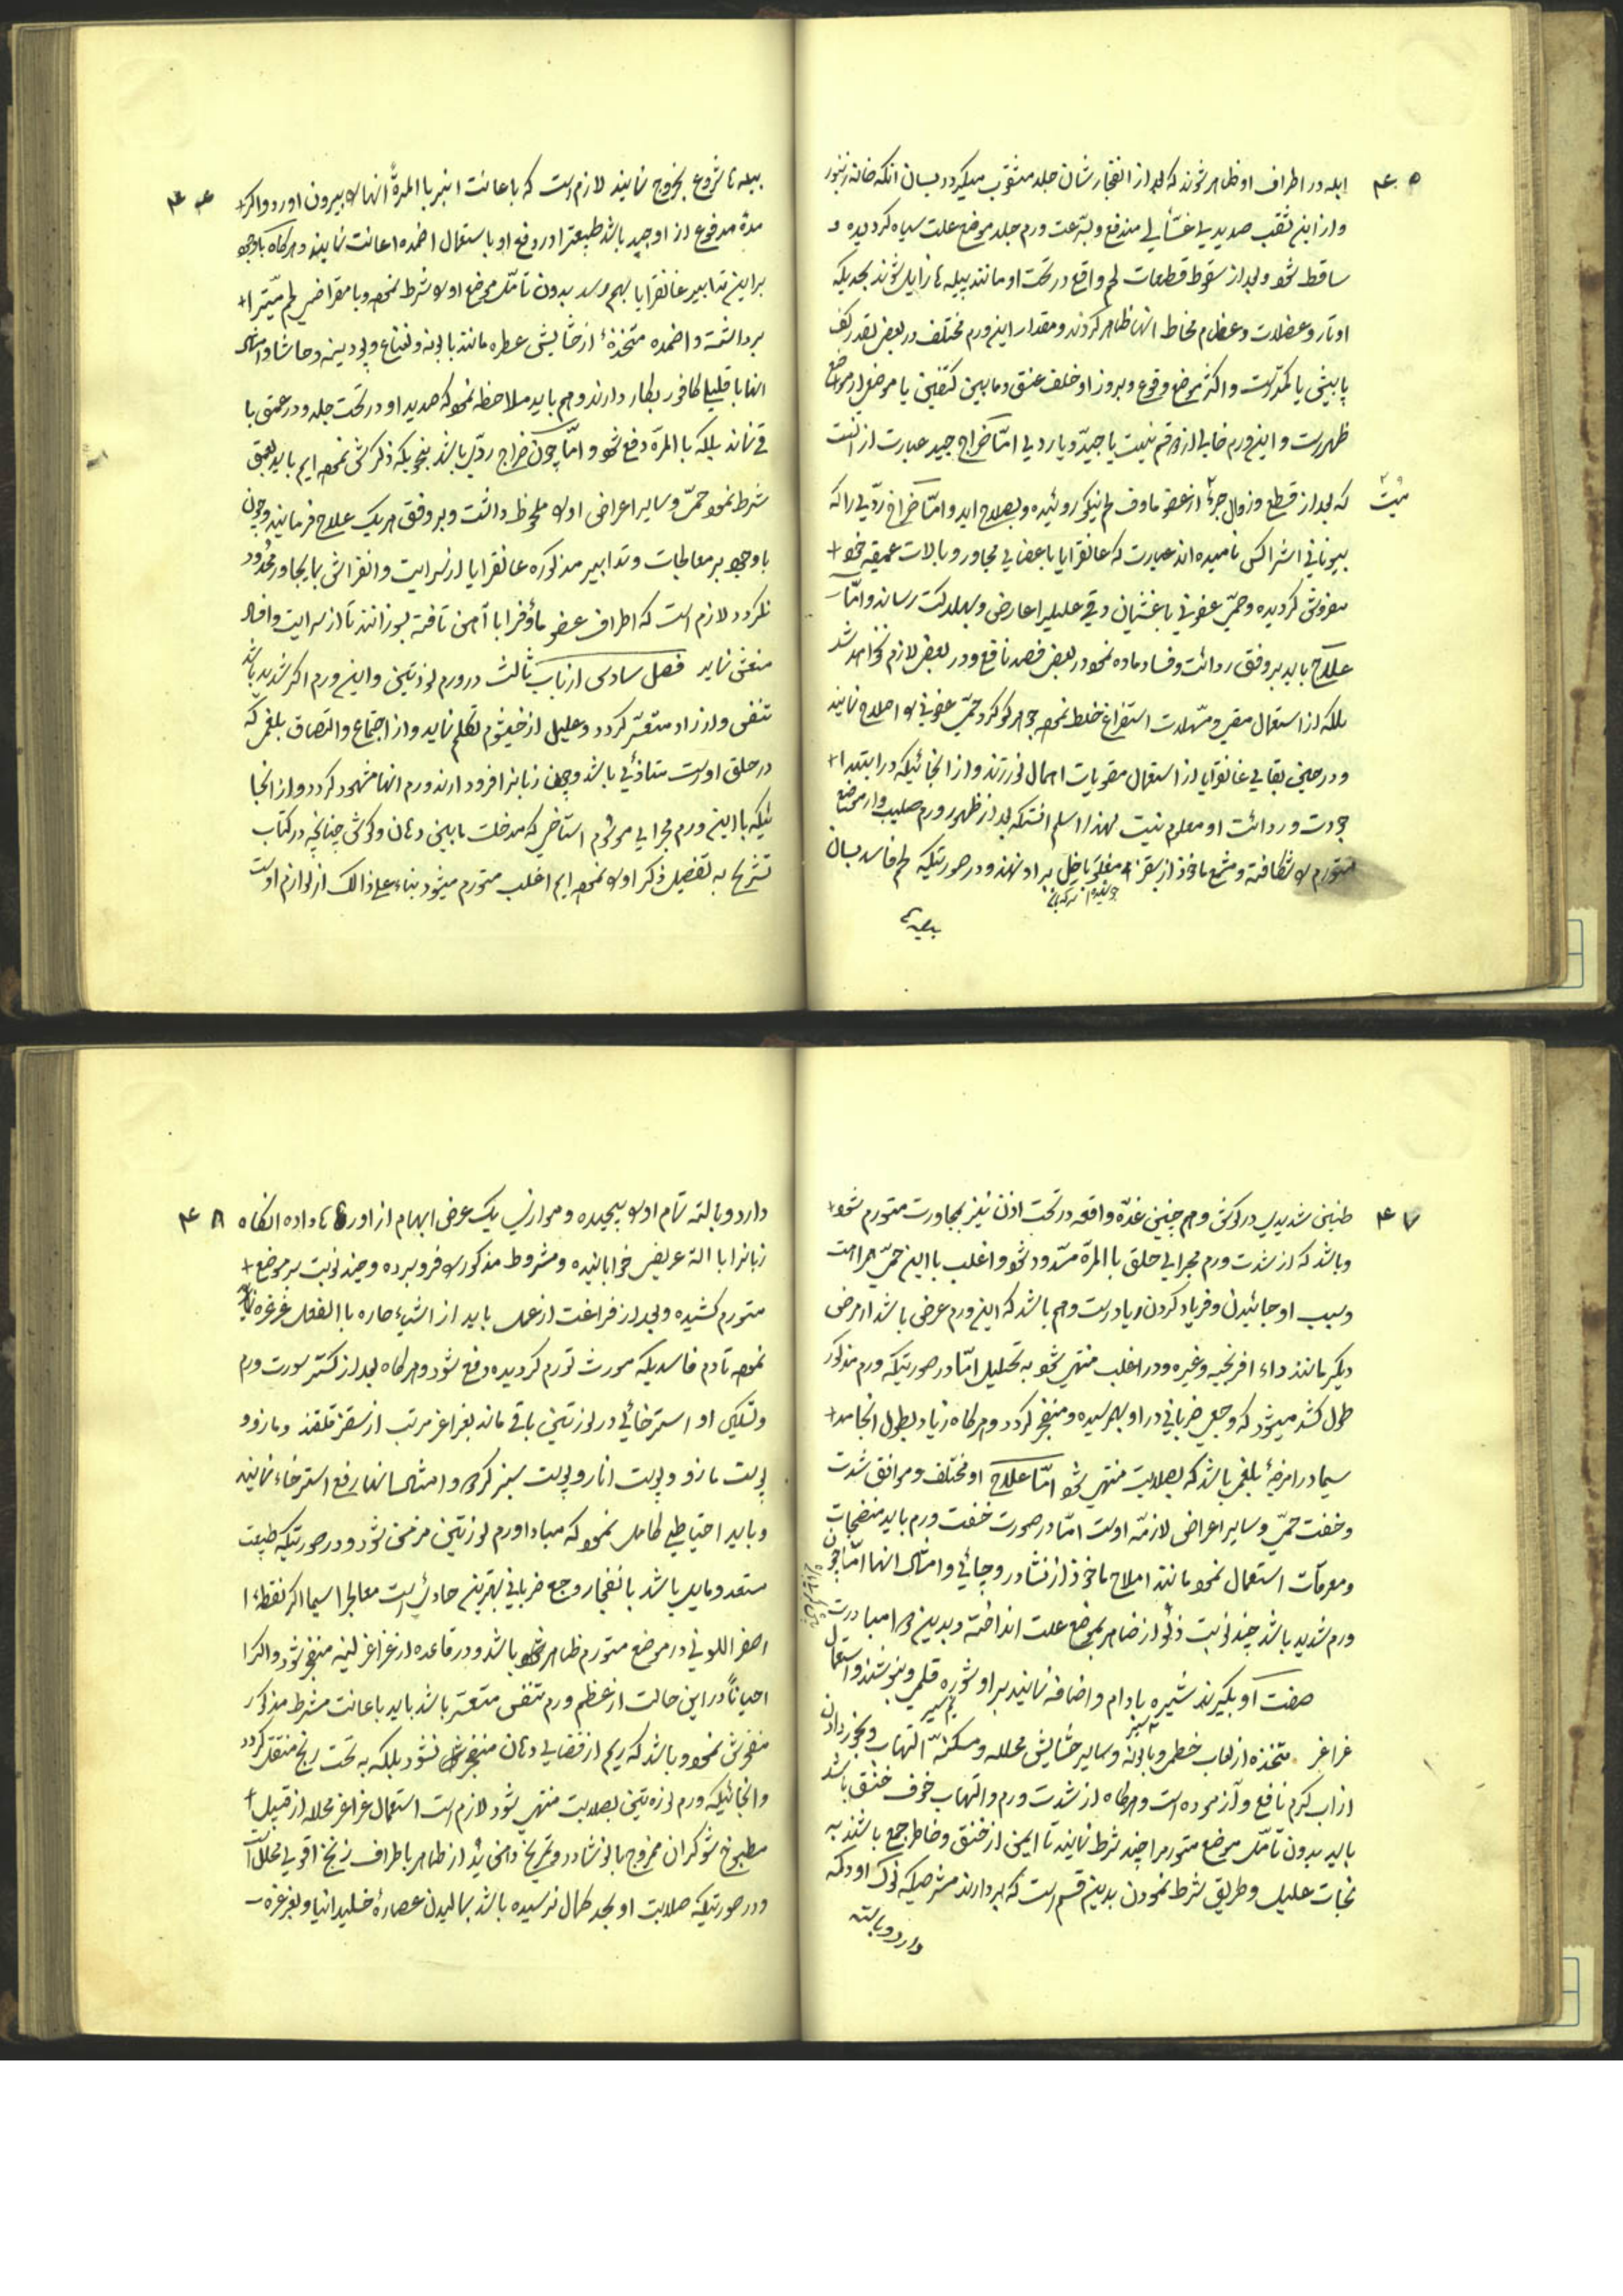 ۴۵
ابله در اطراف او ظاهر شوند که بعد از انفجارشان جلد مثقوب میکردد بسان انکه خانه زنبور
و از این ثقب صدیدیه غشائی مندفع و بسرعت ورم جلد موضع علت سیاه کردیده و
ساقط شود و بعد از سقوط قطعات لحم واقع در تحت او مانند پیله ها زایل شوند بحدیکه
اوتار و عضلات و عظام محاط انها ظاهر کردند و مقدار این ورم مختلف در بعض بقدر کف
یا بیش یا کمتر است و اکثر موضع وقوع و بروز او خلف عنق و مابین کتفین یا موضعی از مواضع
ظهر است و این ورم خالی از دو قسم نیست یا جید و یا ردی اما خراج جید عبارت از انست
که بعد از قطع و زوال جزء از عضو ماوف لحم نیکو روئیده و بصلاح اید و اما خراج ردی را که
بیونانی انثراکس نامیده اند عبارت که غانقرایا باعضای مجاور و بالات عمیقه خود
مفروش کردیده و حمی عفونی با غشیان وقی علیل را عارض و بهلاکت رساند و اما
علاج باید بر وفق ردائت و فساد ماده نمود در بعض فصد نافع و در بعض لازم نخواهد شد
بلکه از استعمال مقی و مسهلات استفراغ خلط نموده جوهر کوکرد حمی عفونی را اصلاح نمایند
و در حین بقای غانقرایا از استعمال مقویات اهمال نورزند و از انجائیکه در ابتدا
جودت و ردائت او معلوم نیست لهذا اسلم انستکه بعد از ظهور ورم صلیب وار موضع
متورم را شکافته و شمع ماخوذ از سقز و بر او نهند و در صورتیکه لحم فاسد بسان
پیله ها
۴۶
پیله ها شروع بخروج نمایند لازم است که باعانت انبر با المرة انها را بیرون اورد و اکر
مده مدفوع از او جید باشد طبیعترا در دفع او باستعمال اضمده اعانت نمایند و هرکاه باوجود
براین تدابیر غانقرایا بهم رسد بدون تامل موضع او را شرط نموده و با مقراض لحم میترا
برداشته و اضمده متخذهٔ از حشایش عطره مانند بابونه و نعناع و پودینه و حاشا و امثال
انها با قلیلی کافور بکار دارند و هم باید ملاحظه نمود که صدید او در تحت جلد و در عمق با
قی نماند بلکه با المرة دفع شود و اما چون خراج ردی باشد بنحویکه ذکرش نموده ایم باید بعمق
شرط نمود حمی و سایر اعراض او را ملحوظ داشت و بر وفق هریک علاج فرمایند و چون
باوجود بر معالجات و تدابیر مذکوره غانقرایا از سرایت و انفراش بما یجاور محدود
نکردد لازم است که اطراف عضو ماوف را با آهن تافته بسوزانند تا از سرایت و افساد
ممنعش نماید فصل سادس از باب ثالث در ورم لوزتین و این ورم اکر شدید باشد
تنفس و ازدراد متعسر کردد و علیل از خیشوم تکلم نماید و از اجتماع و التصاق بلغمی که
در حلق اوست متاذی باشد و چون زبانرا فرود ارند ورم انها مشهود کردد و از انجا
ئیکه با این ورم مجرای موسوم استاخی که مدخلت مابین دهان و کوش چنانچه در کتاب
تشریح به تفضیل ذکر او را نموده ایم اغلب متورم میشود بناء علی ذالک از لوازم اوست
۴۷
طنین شدیدی در کوش و هم چنین غدهٔ واقعه در تحت اذن نیز بمجاورت متورم شود
و باشد که از شدت ورم مجرای حلق با المرة مسدود شود و اغلب با این حمی همراهست
و سبب او جائیدن و فریاد کردن زیاد است و هم باشد که این ورم عرضی باشد از مرض
دیکر مانند داء افرنجیه و غیره و در اغلب منتهی شود به تحلیل اما در صورتیکه ورم مذکور
طول کشد میشود که وجعی ضربانی در او بهم رسیده و منفجر کردد و هرکاه زیاد بطول انجامد
سیما در امزجهٔ بلغمی باشد که بصلابت منتهی شود اما علاج او مختلف و موافق شدت
و خفت حمی و سایر اعراض لازمه اوست اما در صورت خفت ورم باید منضجات
و معرقات استعمال نمود مانند املاح ماخوذ از نشادر و چائی و امثال انها اما چون
ورم شدید باشد چند نوبت زالو از ظاهر بموضع علت انداخته و بدین دوا مبادرت
صفت آو بکیرند شیره بادام و اضافه نمایند بر او شوره قلمی و بنوشند و استعمال
غراغر متخذه از لعاب خطمی و بابونه و سایر حشایش محلله و مسکنه التهاب و بخور دادن
از اب کرم نافع و آزموده است و هرکاه از شدت ورم و التهاب خوف خنق باشد
باید بدون تامل موضع متورمرا چند شرط نمایند تا ایمن از خنق و خاطر جمع باشند به
نجات علیل و طریق شرط نمودن بدین قسم است که بردارند مشرطیکه نوک او دکه
دارد و بالته
۴۸
دارد و بالته تمام او را پیچیده و موازی یک عرض ابهام از او را داده انکاه
زبانرا با الة عریض خوابانیده و مشروط مذکور را فرو برده و چند نوبت بر موضع
متورم کشیده و بعد از فراغت از عمل باید از اشیاء حاره با الفعل غرغره نمایند
نموده تا دم فاسدیکه مورث تورم کردیده دفع شود و هرکاه بعد از کسر سورت ورم
و تسکین او استرخائی در لوزتین باقی ماند بغراغر مرتب از سقز قلقند و مازو و
پوست مازو و پوست انار و پوست سبز کردو و امثال انها رفع استرخاء نمایند
و باید احتیاطی کامل نمود که مبادا ورم لوزتین مزمن شود و در صورتیکه طبیعت
مستعد و ماید باشد بانفجار وجع ضربانی بهترین حادث است معالجرا سیما اکر نقطهٔ
اصفر اللونی در موضع متورم ظاهر باشد و در قاعده از غراغر لینه منفجر شود و اکر
احیاناً در این حالت از عظم ورم تنفس متعسر باشد باید باعانت مشرط مذکور
مفروش نمود و باشد که ریم از فضای دهان منفجر نشود بلکه به تحت زنخ منتقل کردد
و انجائیکه ورم لوزتین بصلابت منتهی شود لازم است استعمال غراغر محلله از قبیل
مطبوخ شوکران ممزوج بانوشادر و تمریخ دهن از ظاهر باطراف زنخ اقوی محلل است
و در صورتیکه صلابت او بحد کمال نرسیده باشد بمالیدن عصارهٔ و بغرغره